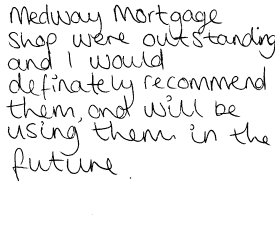 Medway Mortgage
Shop were outstanding
and I would
definately recommend
them, and will be
using them in the
future.